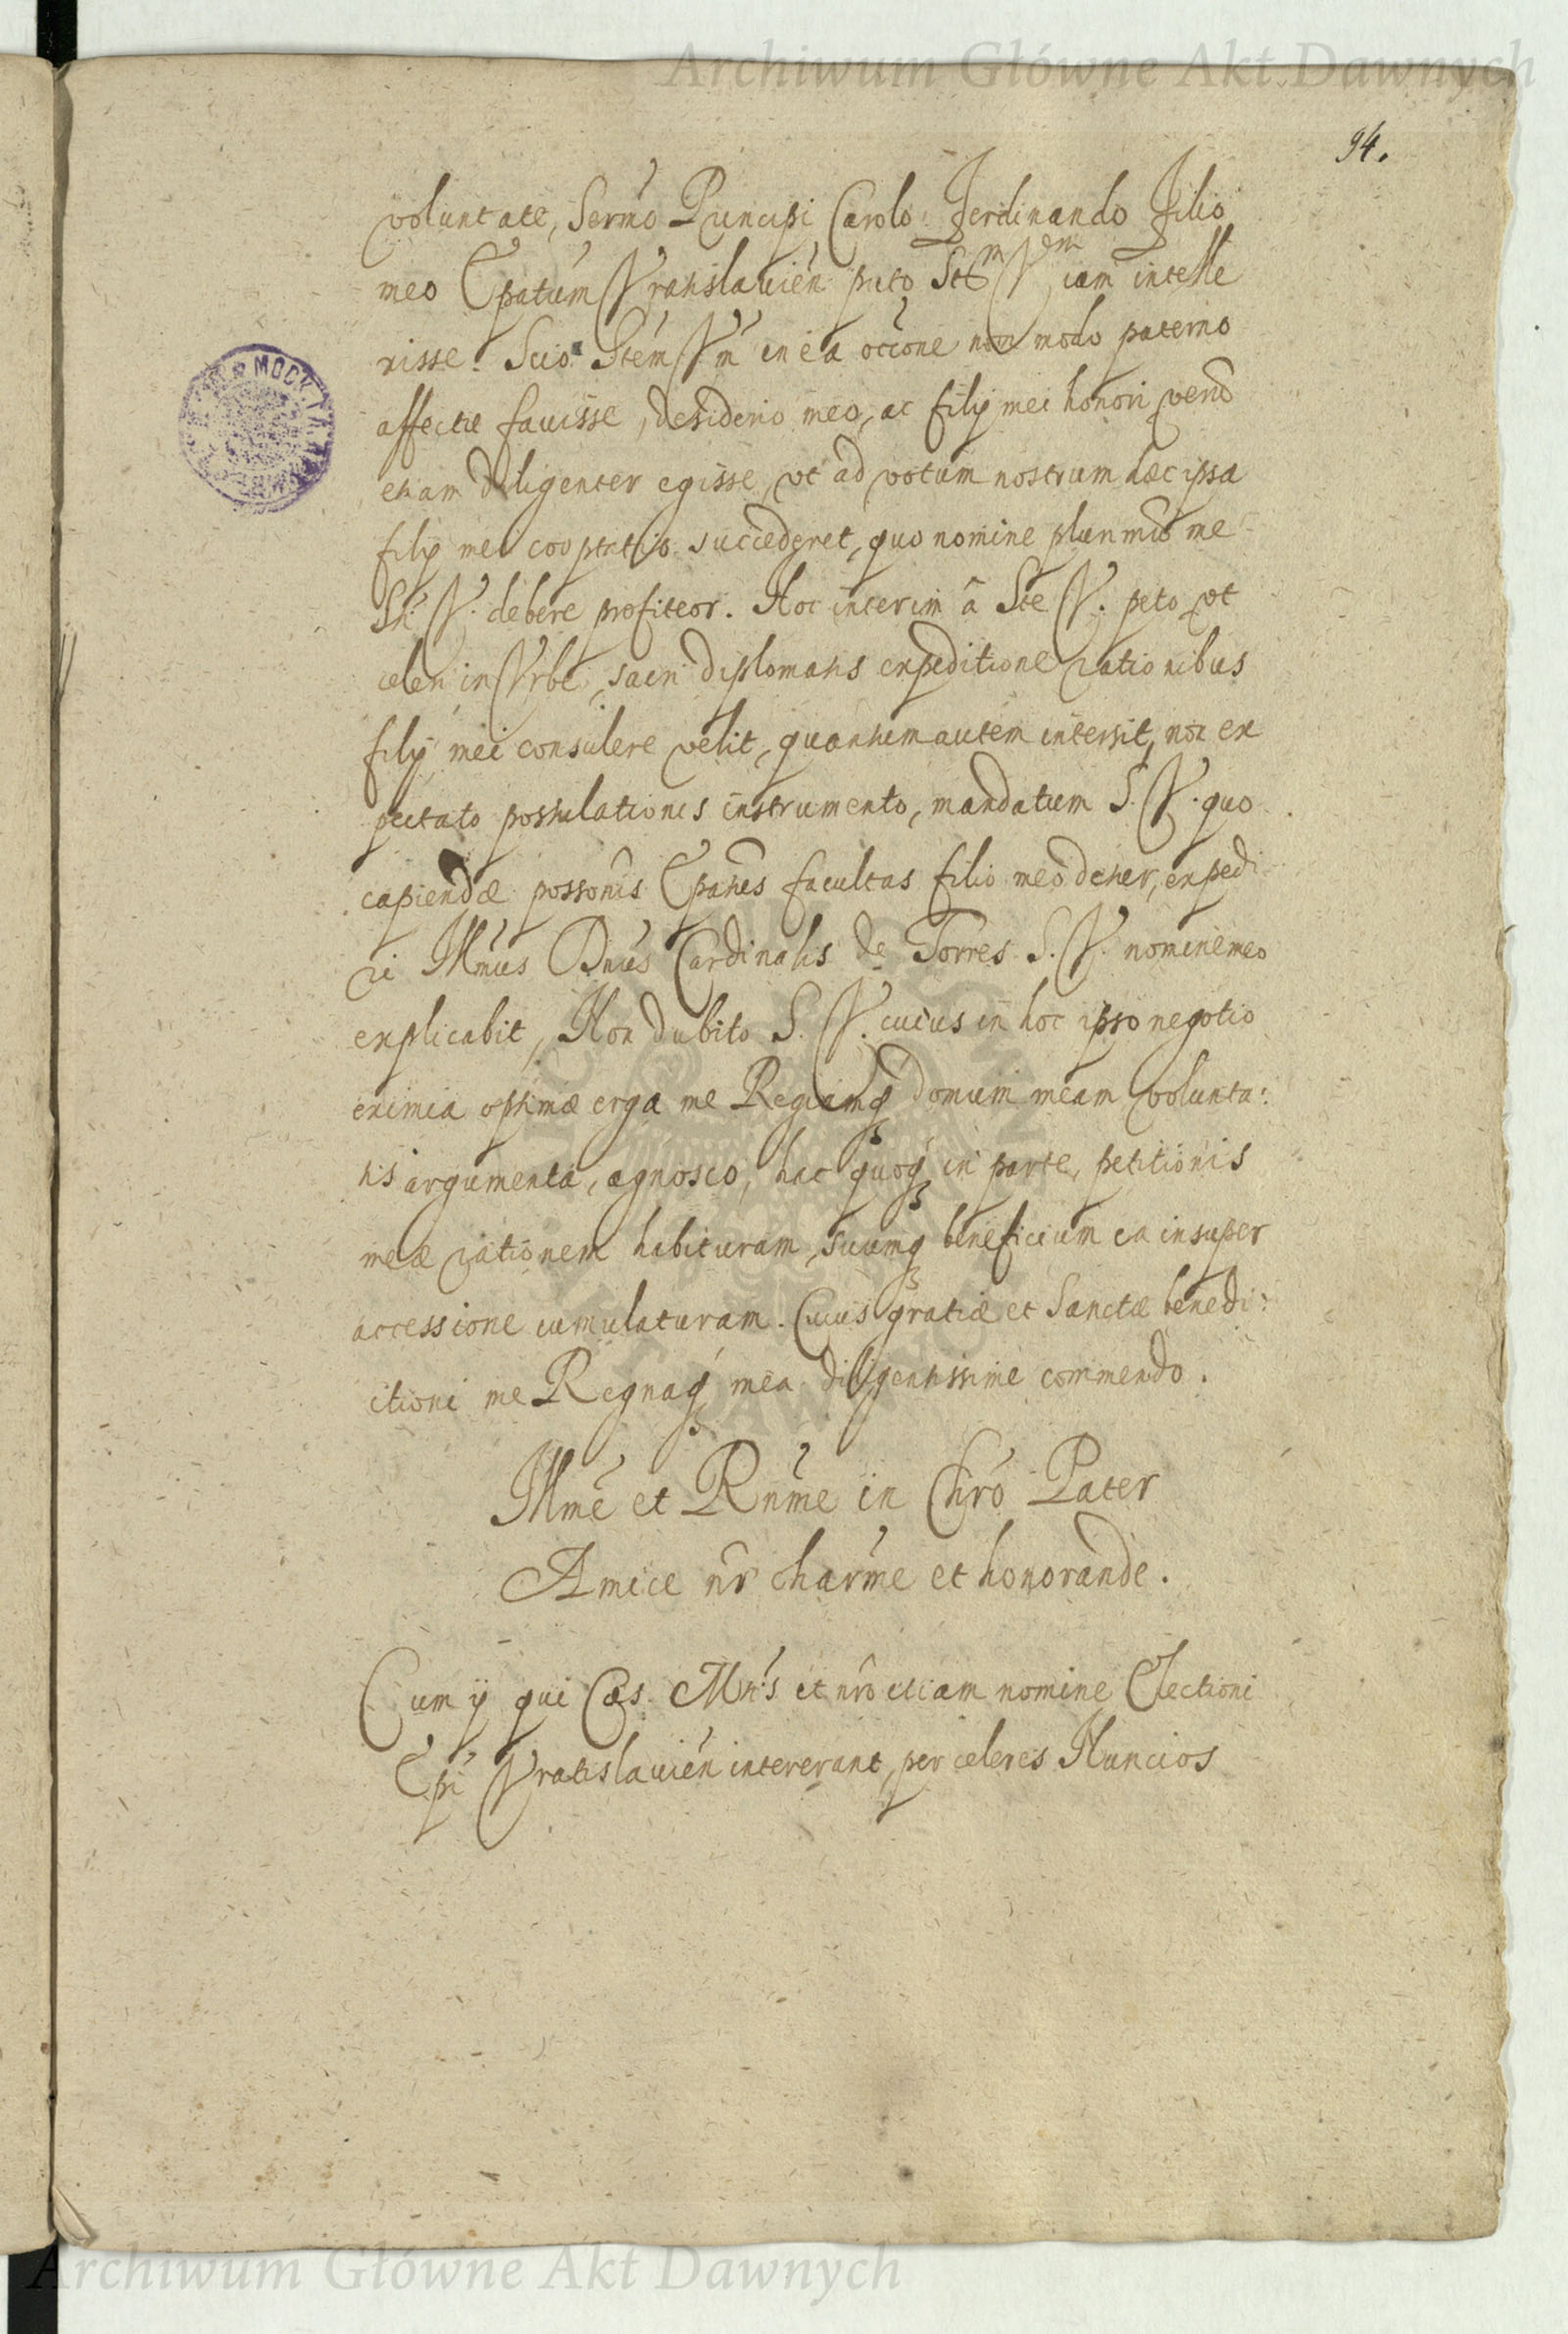 Archiwum Główne Akt Dawnych
94.
voluntate, Sermo Principi Carolo Ferdinando Filio
meo Epatum Vratislauien puto Stem Vem iam intelle
xisse. Scio Stem Vm in ea occione non modo paterno
affectu fauisse, desiderio meo, ac filij mei honori verò
etiam diligenter egisse, vt ad votum nostrum hæc ipsa
filij mei cooptatio succederet, quo nomine plurimũ me
Sti V. debere profiteor. Hoc interim â Ste V. peto vt
celeri in Vrbe, sacri diplomatis expeditione rationibus
filij mei consulere velit, quantum autem intersit, non ex
pectato postulationis instrumento, mandatum S. V. quo
capiendæ possonis Epatus facultas filio meo detur, expedi
ri Illmus Dnus Cardinalis de Torres S. V. nomine meo
explicabit, Non dubito S. V. cuius in hoc ipso negotio
eximia optimæ erga me Regiamq domum meam volunta:
tis argumenta, agnosco, hac quoq in parte, petitionis
meæ rationem habituram, suumq beneficium ea insuper
accessione cumulaturam. Cuius gratiæ et Sanctæ benedi:
ctioni me Regnaq mea diligentissime commendo.
Illme et Rnme in Chro Pater
Amice nr charme et honorande.
Cum ij qui Cæs. Mtis et nro etiam nomine Electioni
Epi Vratislauien intererant, per celeres Nuncios
Archiwum Główne Akt Dawnych